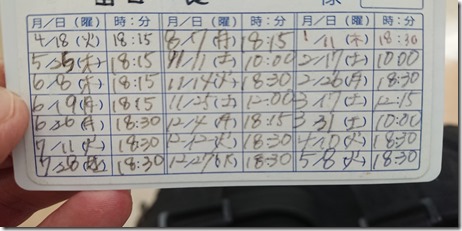 様
月/日(曜) 時:分 月/日(曜) 時:分 月/日(曜) 時:分
4/18(火) 18:15 8/7(月) 18:15 1/11(木) 18:30
5/25(木) 18:15 11/11(土) 10:00 2/17(土) 10:00
6/8(木) 18:15 11/14(火) 18:30 2/26(月) 18:30
6/19(月) 18:15 11/25(土) 12:00 3/17(土) 12:15
6/26(月) 18:30 12/4(月) 18:15 3/31(土) 10:00
7/11(火) 18:30 12/12(火) 18:30 4/10(火) 18:30
18:30 12/27(水) 18:30 5/8(火) 18:30